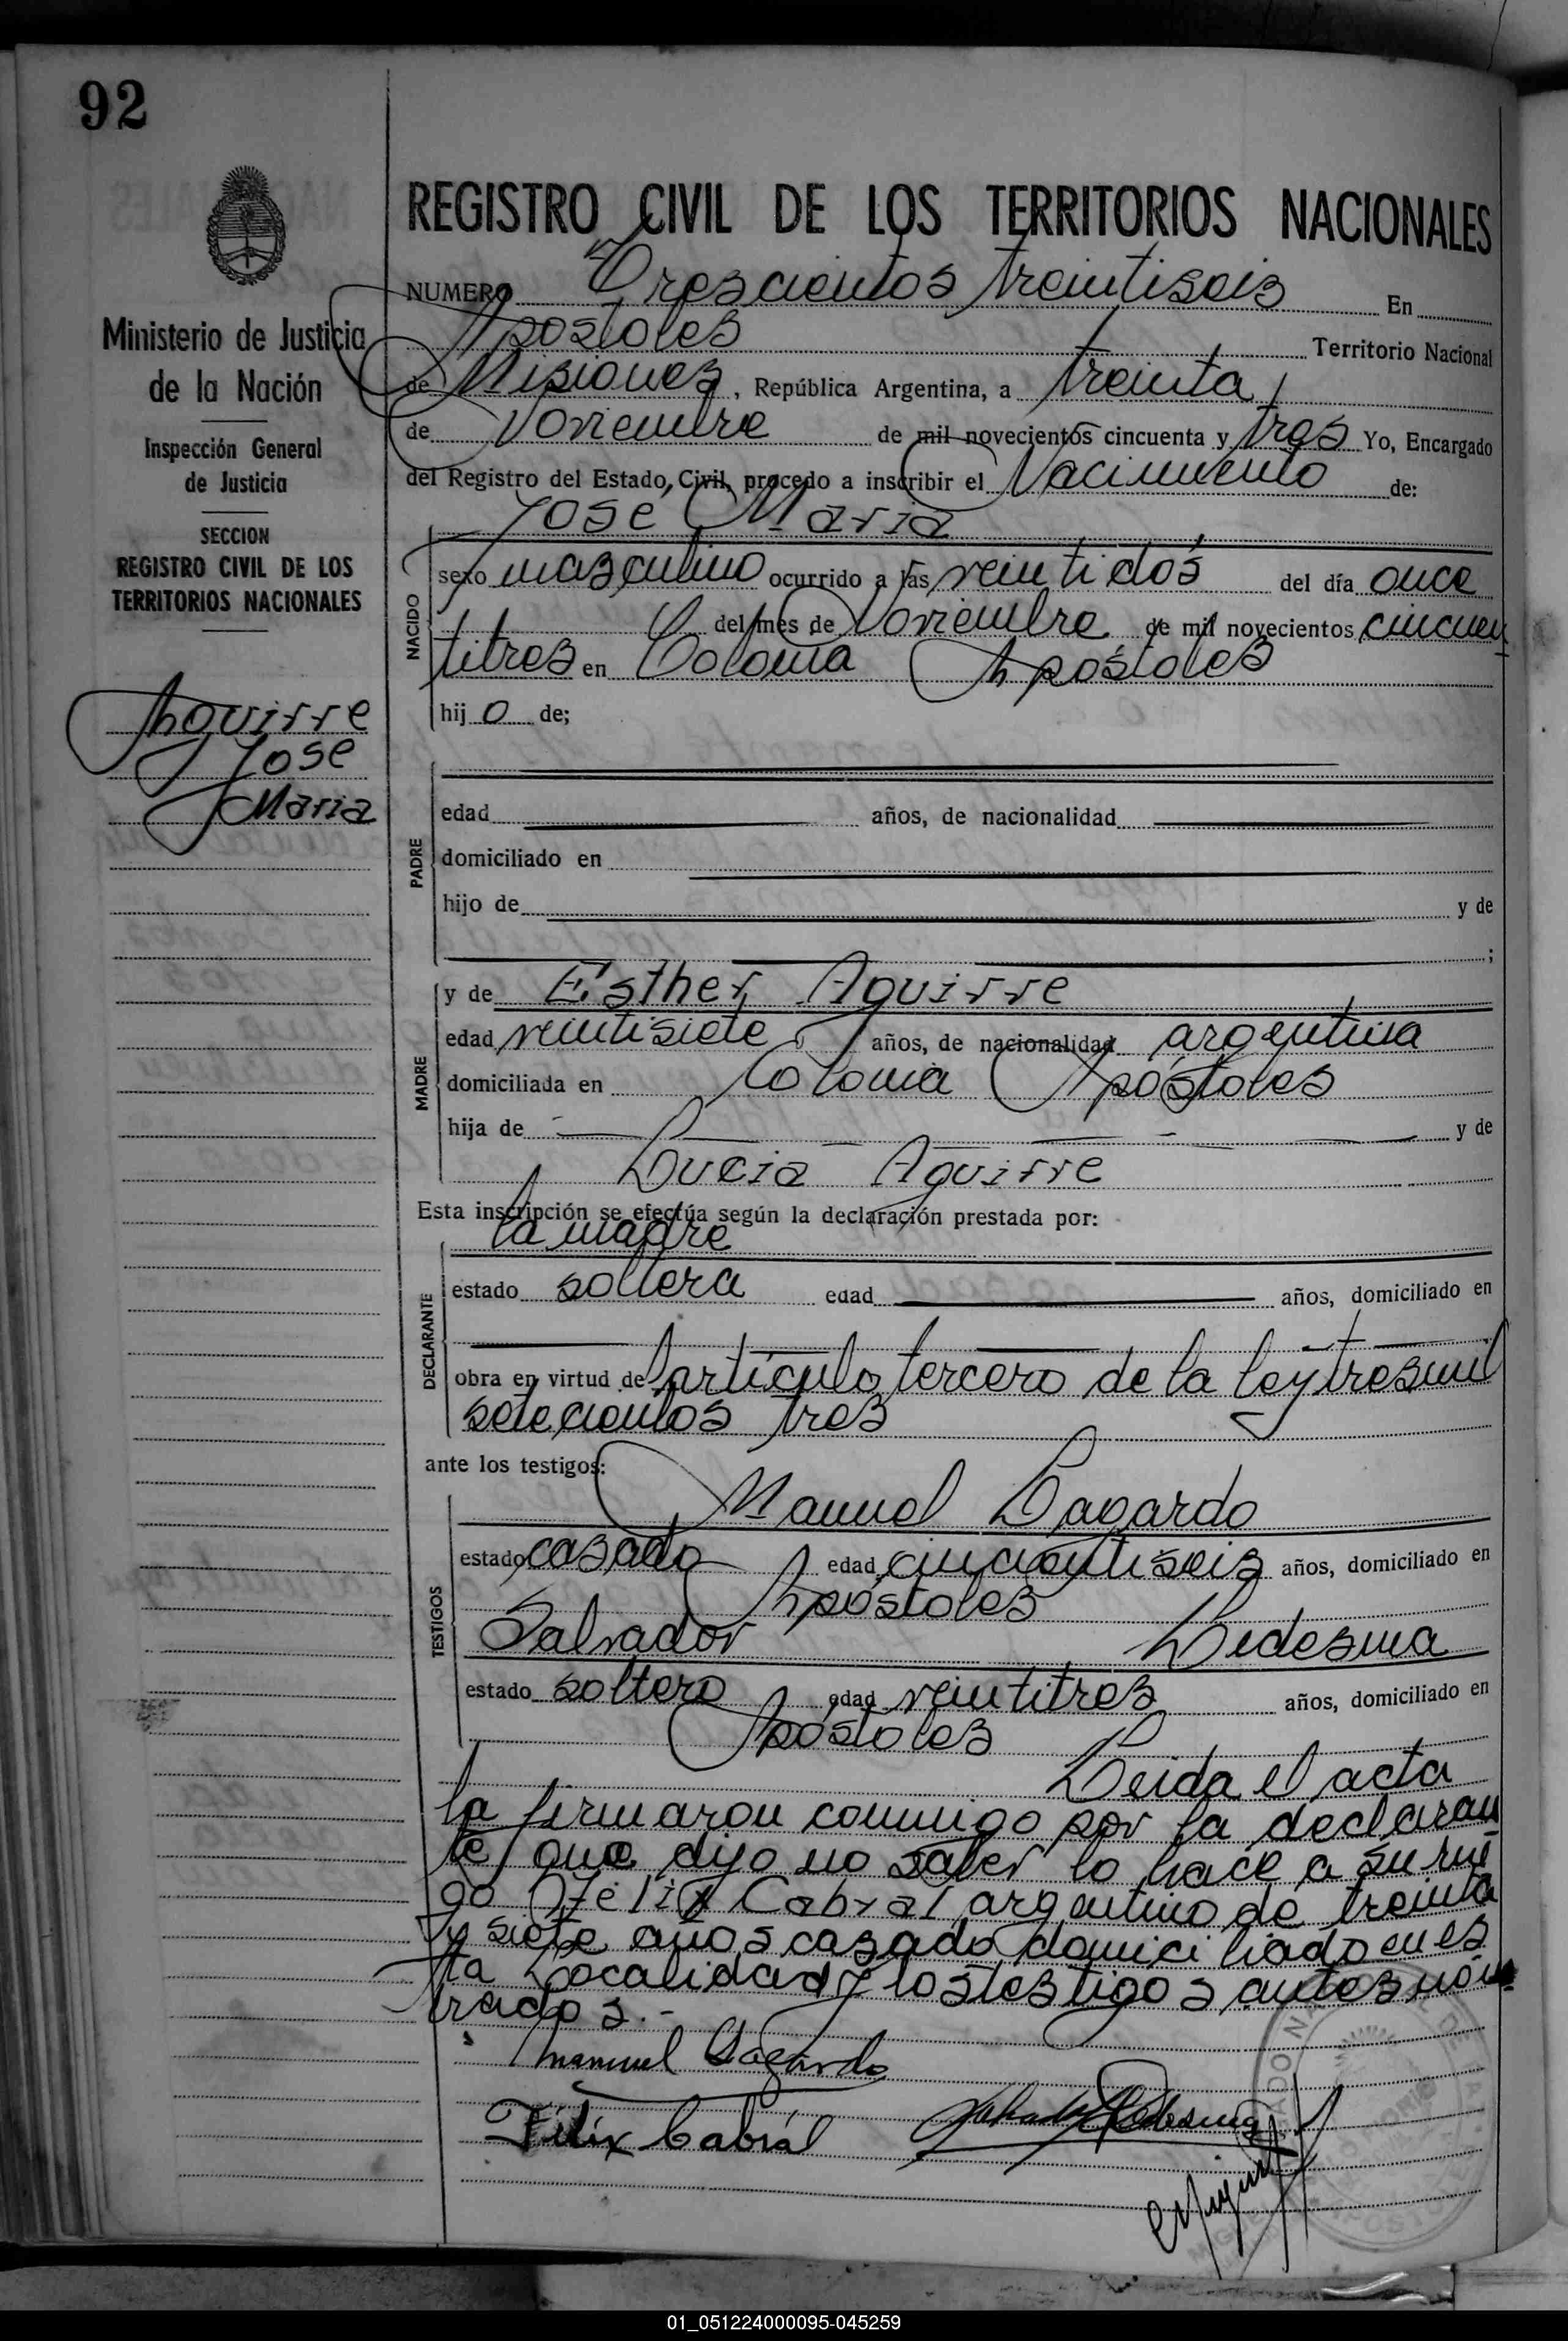 92
REGISTRO CIVIL DE LOS TERRITORIOS NACIONALES
NUMERO Trescientos treintiseis En
Apostoles Territorio Nacional
de Misiones, República Argentina, a treinta
de Noviembre de mil novecientos cincuenta y tres Yo, Encargado
del Registro del Estado Civil, procedo a inscribir el Nacimiento de:
José Maria
Ministerio de Justicia
de la Nación
Inspección General
de Justicia
SECCION
REGISTRO CIVIL DE LOS
TERRITORIOS NACIONALES
Aguirre
Jose
Maria
NACIDO
sexo masculino ocurrido a las veintidós del día once
del mes de Noviembre de mil novecientos cincuen
titres en Colonia Apóstoles
hij o de;
PADRE
edad años, de nacionalidad
domiciliado en
hijo de y de
;
MADRE
y de Esther Aguirre
edad veintisiete años, de nacionalidad argentina
domiciliada en Colonia Apóstoles
hija de y de
Lucia Aguirre
Esta inscripción se efectúa según la declaración prestada por:
la madre
DECLARANTE
estado soltera edad años, domiciliado en
obra en virtud de artículo tercero de la ley tresmil
setecientos tres
ante los testigos:
Manuel Dagardo
TESTIGOS
estado casado edad cincuentiseis años, domiciliado en
Apóstoles
Salvador Ledesma
estado soltero edad veintitres años, domiciliado en
Apóstoles
Leida el acta
la firmaron conmigo por la declaran
te que dijo no saber lo hace a su rue
go Félix Cabral argentino de treinta
y siete años casado domiciliado en es
ta Localidad y los testigos antes nom
brados.-
Manuel Dagardo
Félix Cabrál
01_051224000095-045259